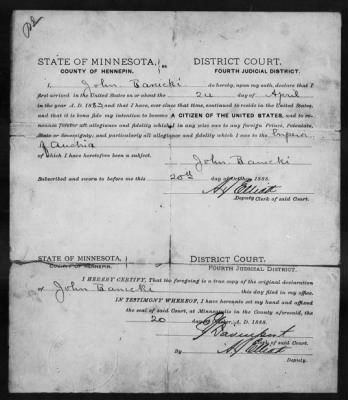 STATE OF MINNESOTA, } ss. DISTRICT COURT,
COUNTY OF HENNEPIN. FOURTH JUDICIAL DISTRICT.
I, John Banicki do hereby, upon my oath, declare that I
first arrived in the United States on or about the 24 day of April
in the year A. D. 1883 and that I have, ever since that time, continued to reside in the United States,
and that it is bona fide my intention to become A CITIZEN OF THE UNITED STATES, and to re-
nounce forever all allegiance and fidelity which I in any wise owe to any foreign Prince, Potentate,
State or Sovereignty, and particularly all allegiance and fidelity which I owe to the Emperor
of Austria
of which I have heretofore been a subject.
John Banicki
Subscribed and sworn to before me this 20th day of A. D. 1888.
Elliott
Deputy Clerk of said Court.
STATE OF MINNESOTA, } ss. DISTRICT COURT,
COUNTY OF HENNEPIN. FOURTH JUDICIAL DISTRICT.
I HEREBY CERTIFY, That the foregoing is a true copy of the original declaration
of John Banicki this day filed in my office.
IN TESTIMONY WHEREOF, I have hereunto set my hand and affixed
the seal of said Court, at Minneapolis in the County aforesaid, the
20 day of A. D. 1888.
Davenport
Clerk of said Court.
By Elliott
Deputy.